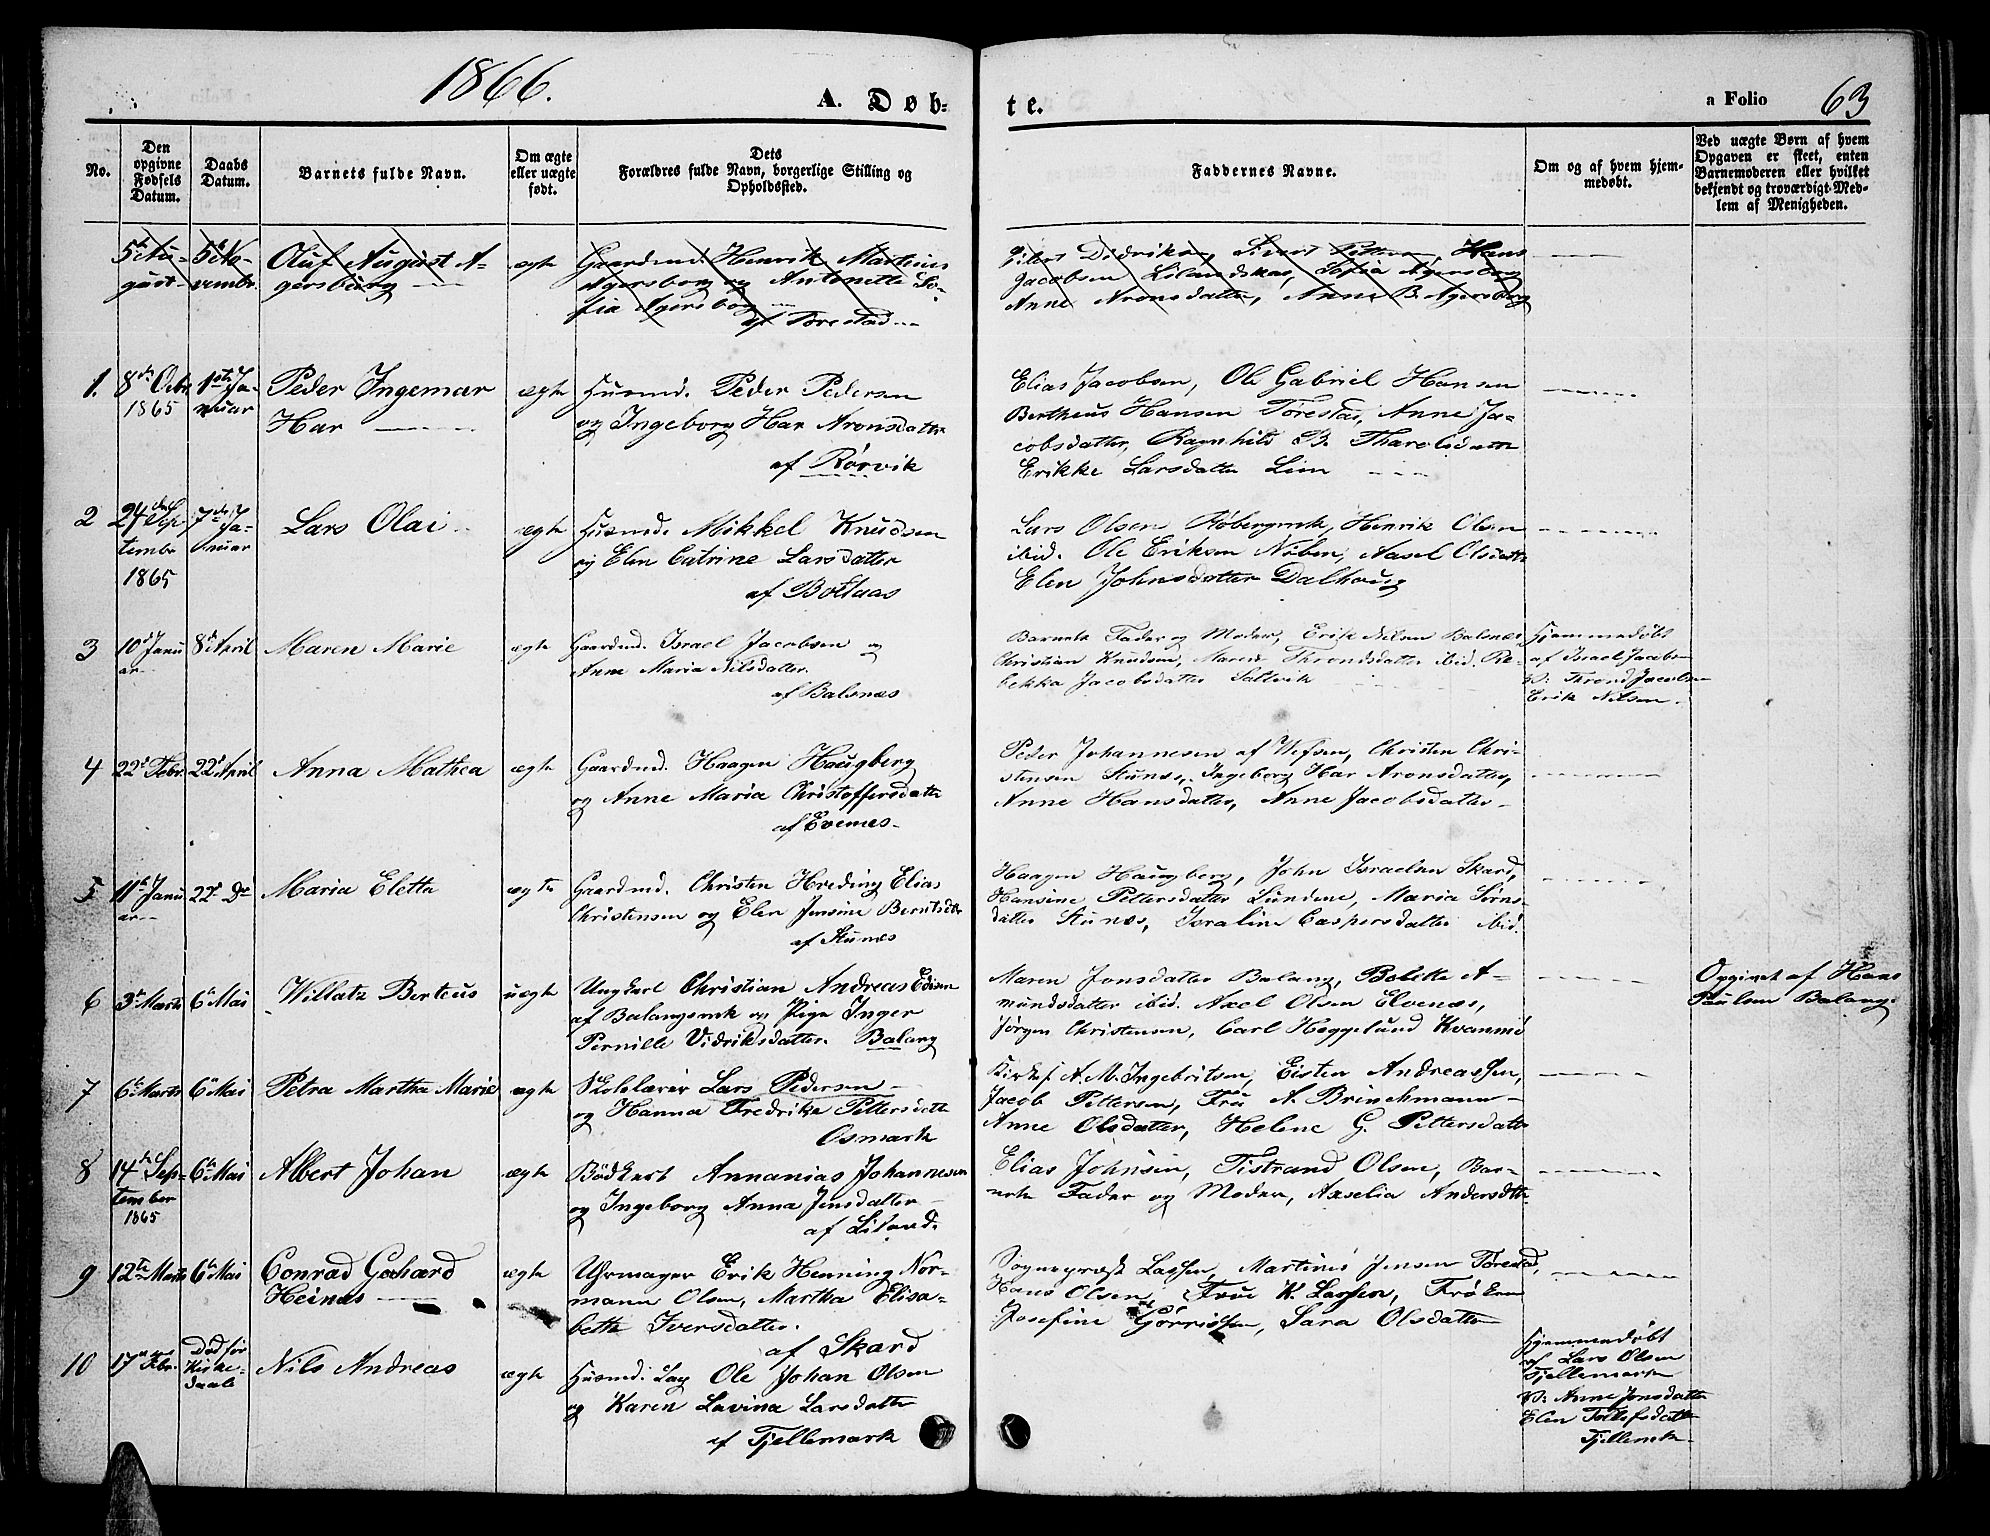 1866.
A. Døb-
te.
a Folio 63
No.
Den opgivne Fødsels Datum.
Daabs Datum.
Barnets fulde Navn.
Om ægte eller uægte født.
Dets Forældres fulde Navn, borgerlige Stilling og Opholdssted.
Faddernes Navne.
Om og af hvem hjem-
medøbt.
Ved uægte Børn af hvem
Opgaven er skeet, enten
Barnemoderen eller hvilket
bekjendt og troværdigt Med-
lem af Menigheden.
5te Au-
gust
5te No-
vembr.
Oluf August A-
gersborg
ægte
Gaardmd. Henrik Martinus
Agersborg og Antonette So-
fia Agersborg
af Torestad
Didriksen, Sivert Pettersen, Hans
Jacobsen Lilandskar, Sofia Agersborg
Anne Aronsdatter, Anne B. Agersborg
1.
8de Octbr
1865
1ste Ja-
nuar
Peder Ingemar
Har
ægte
Husmd. Peder Pedersen
og Ingeborg Har Aronsdatter
af Rørvik
Elias Jacobsen, Ole Gabriel Hansen
Bertheus Hansen Torestad, Anne Ja-
cobsdatter, Ragnhild B. Tharaldsdatter
Erikke Larsdatter Lien
2
24de Sep-
tembr
1865
7de Ja-
nuar
Lars Olai
ægte
Husmd. Mikkel Knudsen
og Elen Catrine Larsdatter
af Boltaas
Lars Olsen Købergmrk, Henrik Olsen
ibid. Ole Eriksen Niben, Aasel Olsdatter
Elen Johnsdatter Dalhaug
3
10de Janu
ar
8de April
Maren Marie
ægte
Gaardmd. Israel Jacobsen og
Anne Maria Nilsdatter
af Balsnæs
Barnets Fader og Moder, Erik Nilsen Balsnæs
Christian Knudsen, Maren Throndsdatter ibid. Re-
bekka Jacobsdatter Saltvik
Hjemmedøbt
af Israel Jacobsen
V: Thrond Jacobsen
Erik Nilsen
4
22de Febr.
22de April
Anna Mathea
ægte
Gaardmd. Haagen Haugberg
og Anne Maria Christoffersdatter
af Evenæs
Peder Johannesen af Vefsen, Christen Chri-
stensen Stunæs, Ingeborg Har Aronsdatter,
Anne Hansdatter, Anne Jacobsdatter
5
11te Janu
ar
22de Do
Maria Eletta
ægte
Gaardmd. Christen Hveding Elias
Christensen og Elen Jensine Berntsdtr
af Stunæs
Haagen Haugberg, John Israelsen Skard,
Hansine Pettersdatter Lundene, Maria Sørns-
datter Stunæs, Israline Caspersdatter ibid.
6
3de Marts
6te Mai
Willatz Berteus
uægte
Ungkarl Christian Andreas Edisen
af Balangsmrk og Pige Inger
Pernille Didriksdatter Balang
Maren Jonsdatter Balang, Bolette A-
mundsdatter ibid. Axel Olsen Elvenæs,
Jørgen Christensen, Carl Heggelund Kvanmo
Opgivet af Hans
Paulsen Balang.
7
6te Marts
6te Mai
Petra Martha Marie
ægte
Skolelærer Lars Pedersen
og Hanna Fredrikke Pettersdatter
Osmark
Kirkes. A. M. Ingebritsen, Eisten Andreassen,
Jacob Pettersen, Fru A. Brinchmann
Anne Olsdatter, Helene G. Pettersdatter
8
14de Sep-
tember
1865
6te Mai
Albert Johan
ægte
Bødkert Annanias Johannesen
og Ingeborg Anna Jensdatter
af Liland.
Elias Johnsen, Tistrand Olsen, Bar-
nets Fader og Moder, Axselia Andersdtr
9
12te Marts
6te Mai
Conrad Gerhard
Heines
ægte
Uhrmager Erik Henning Nor-
mann Olsen, Martha Elisa-
beth Iversdatter.
af Skard
Sognepræst Lassen, Martinus Jensen Torestad,
Hans Olsen, Frue K. Lassen, Frøken
Josefine Gørrissen, Sara Olsdatter
10
17de Febr.
Død før
Kirke-
daab
Nils Andreas
ægte
Husmd. Lay Ole Johan Olsen
og Karen Lavina Larsdatter
af Fjellemark
Hjemmedøbt
af Lars Olsen
Fjellemark
V: Anne Jonsdatter
Elen Tollefsdatter
Fjellemrk.